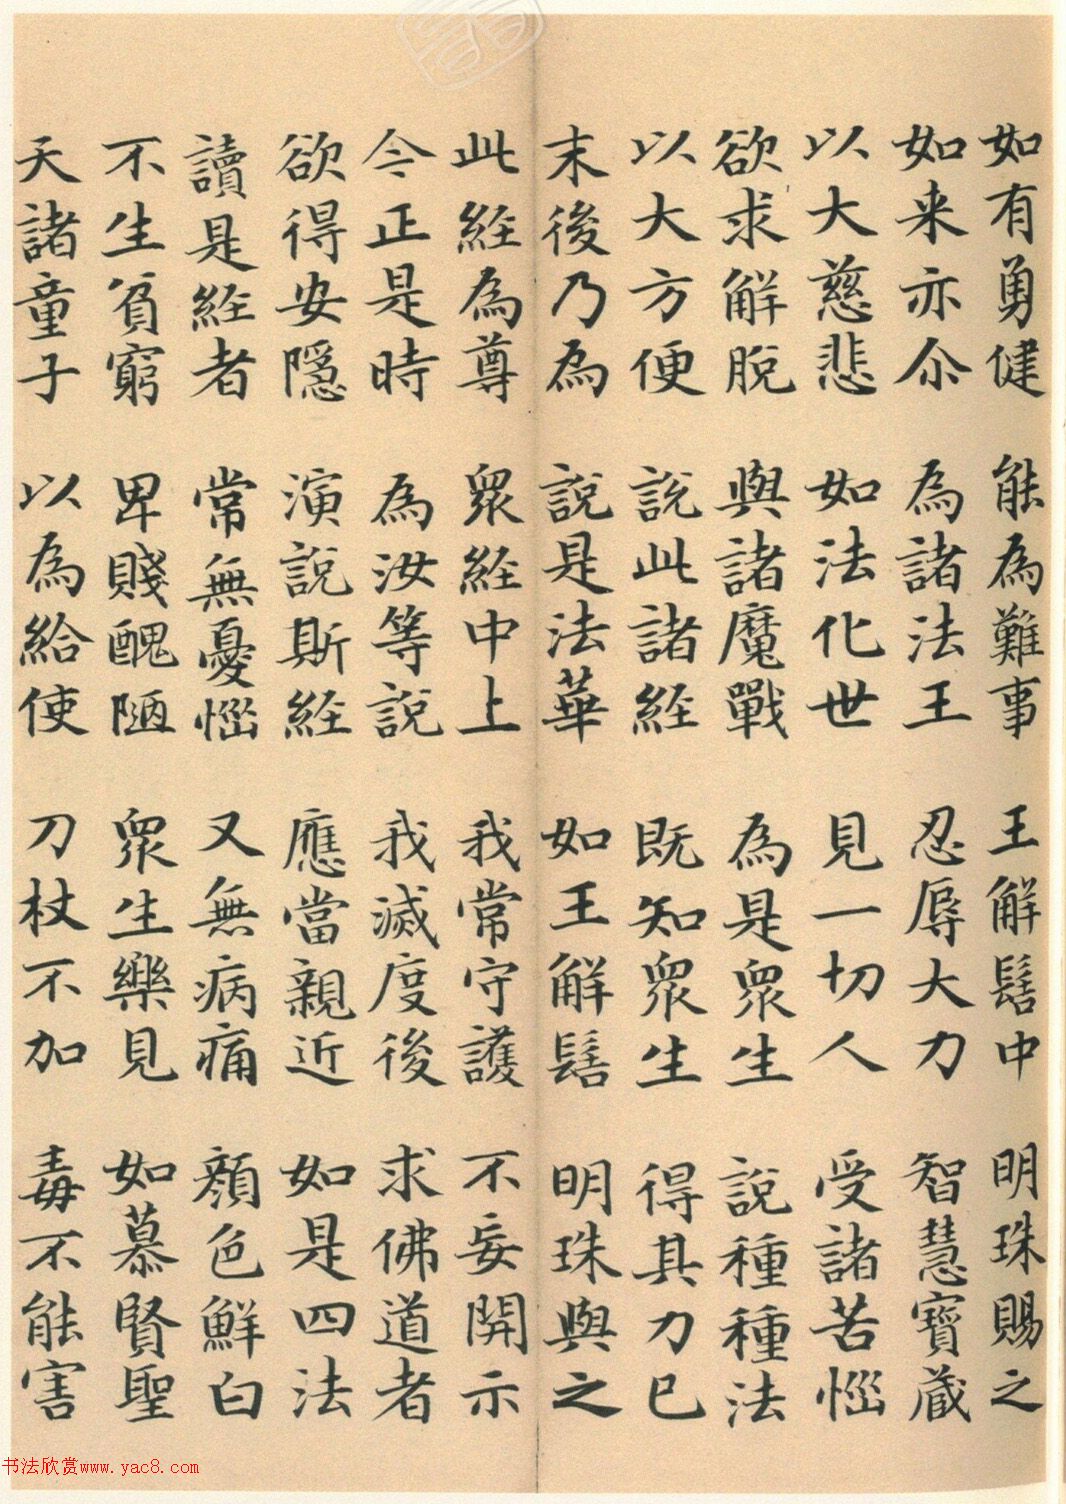 如有勇健 能為難事 王解髻中 明珠賜之
如来亦尒 為諸法王 忍辱大力 智慧寶蔵
以大慈悲 如法化世 見一切人 受諸苦惱
欲求解脫 與諸魔戰 為是眾生 說種種法
以大方便 說此諸經 既知眾生 得其力已
末後乃為 說是法華 如王解髻 明珠與之
此經為尊 眾經中上 我常守護 不妄開示
今正是時 為汝等說 我滅度後 求佛道者
欲得安隱 演說斯經 應當親近 如是四法
讀是經者 常無憂惱 又無病痛 顏色鮮白
不生貧窮 卑賤醜陋 眾生樂見 如慕賢聖
天諸童子 以為給使 刀杖不加 毒不能害
书法欣赏www.yac8.com